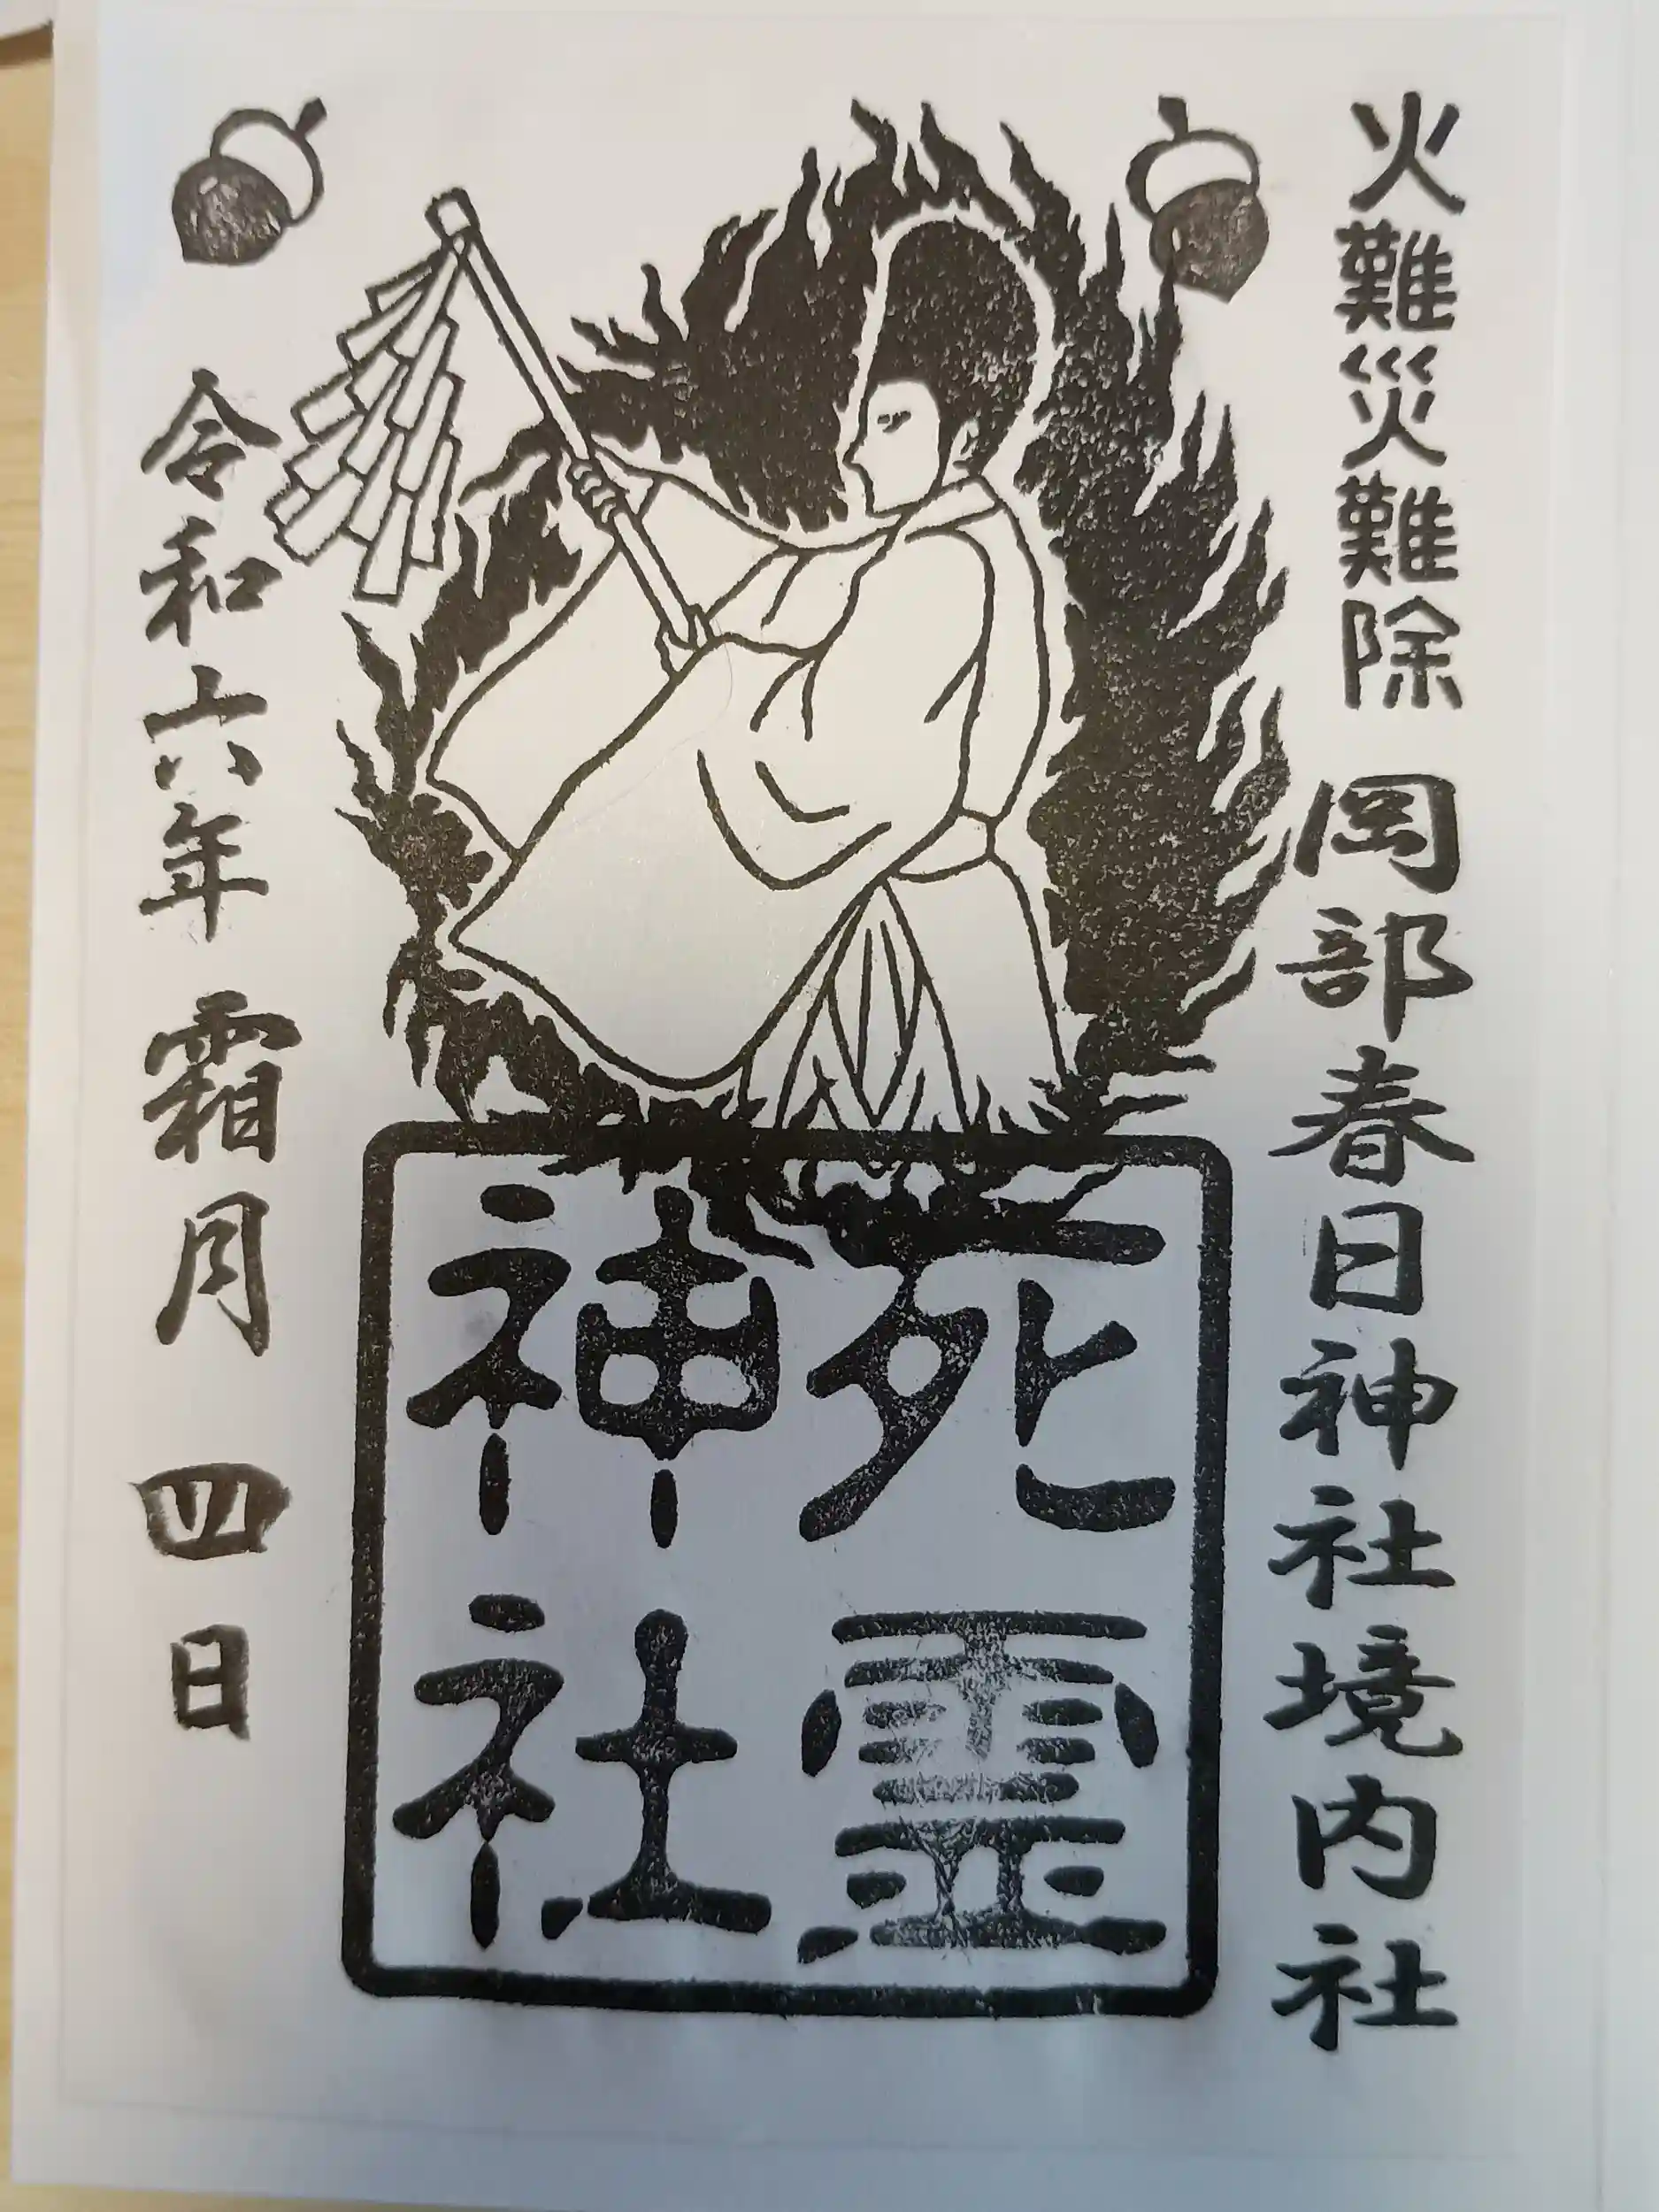 火難災難除 岡部春日神社境内社
死霊
神社
令和六年 霜月 四日